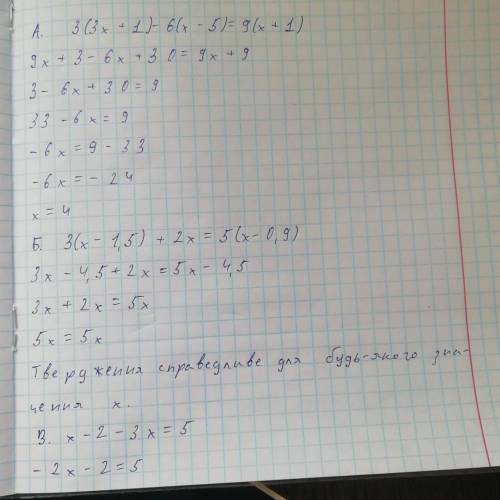 А. 3(3x + 1) - 6(x - 5) = 9(x + 1)
9x + 3 - 6x + 30 = 9x + 9
3 - 6x + 30 = 9
33 - 6x = 9
- 6x = 9 - 33
- 6x = - 24
x = 4
Б. 3(x - 1,5) + 2x = 5(x - 0,9)
3x - 4,5 + 2x = 5x - 4,5
3x + 2x = 5x
5x = 5x
Твердження справедливе для будь-якого зна-
чення x.
В. x - 2 - 3x = 5
- 2x - 2 = 5